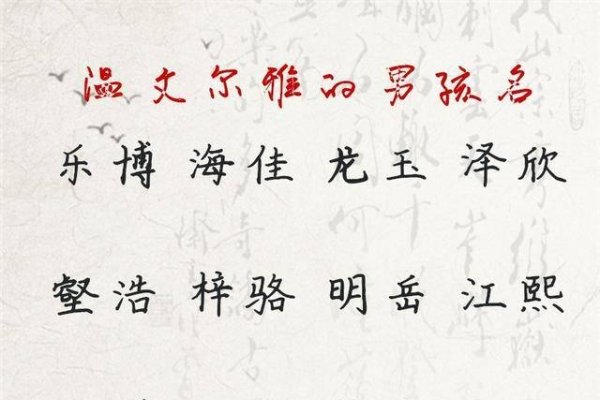 温文尔雅的男孩名
乐博 海佳 龙玉 泽欣
壑浩 梓骆 明岳 江熙